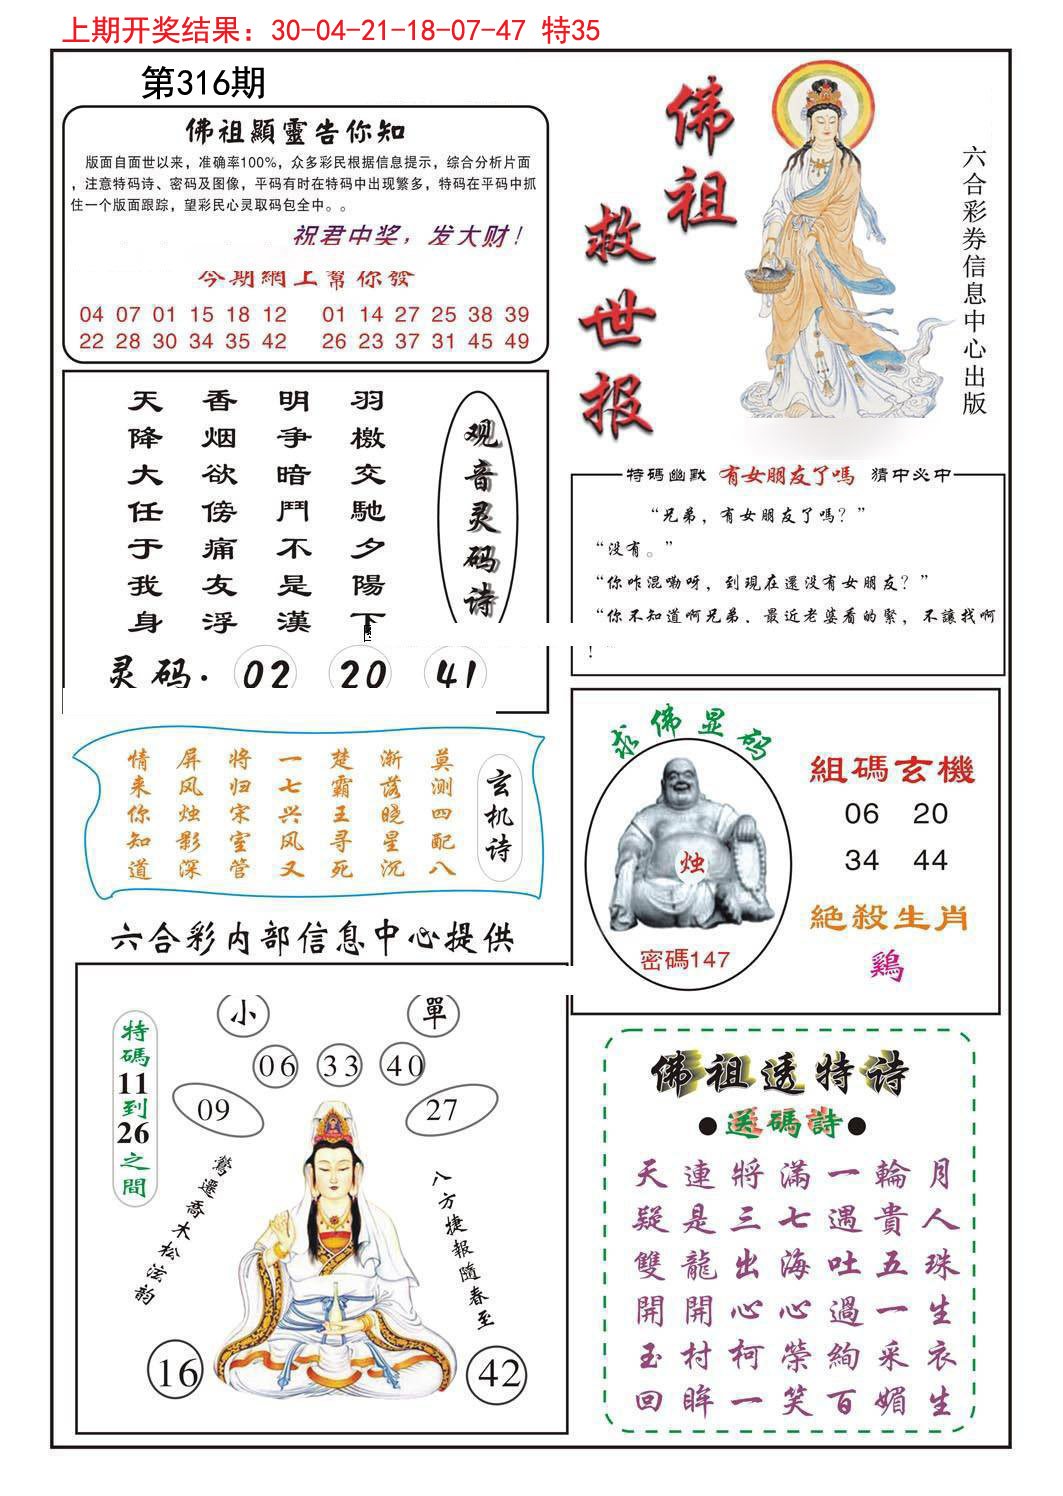 上期开奖结果：30-04-21-18-07-47 特35
第316期
佛祖顯靈告你知
版面自面世以来，准确率100%，众多彩民根据信息提示，综合分析片面
，注意特码诗、密码及图像，平码有时在特码中出现繁多，特码在平码中抓
住一个版面跟踪，望彩民心灵取码包全中。。
祝君中奖，发大财！
今期網上幫你發
04 07 01 15 18 12 01 14 27 25 38 39
22 28 30 34 35 42 26 23 37 31 45 49
佛祖
救世报
六合彩券信息中心出版
天香明羽
降烟争檄
大欲暗交
任傍鬥馳
于痛不夕
我友是陽
身浮漢下
观音灵码诗
灵码. 02 20 41
特码幽默 有女朋友了嗎 猜中必中
“兄弟，有女朋友了嗎？”
“没有。”
“你咋混嘞呀，到現在還没有女朋友？”
“你不知道啊兄弟，最近老婆看的緊，不讓找啊
！
情屏将一楚渐莫
来风归七霸落测
你烛宋兴王晓四
知影室风寻星配
道深管又死沉八
玄机诗
求佛显码
烛
密碼147
組碼玄機
06 20
34 44
絕殺生肖
鷄
六合彩内部信息中心提供
小 單
06 33 40
09 27
特碼11到26之間
鶯遷喬木松泫韵
八方捷報隨春至
16 42
佛祖透特诗
●送碼詩●
天連將滿一輪月
疑是三七遇貴人
雙龍出海吐五珠
開開心心過一生
玉村柯榮絢采衣
回眸一笑百媚生